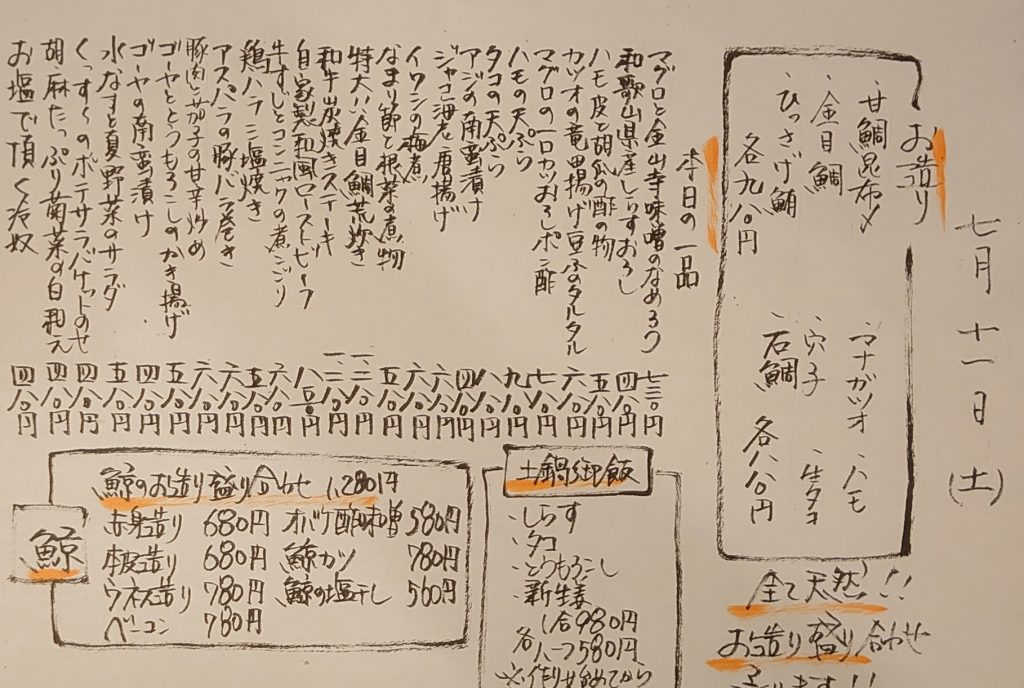 七月十一日(土)
お造り
・甘鯛昆布〆
・金目鯛
・ひっさげ鮪
各九八〇円
・マナガツオ ・ハモ
・穴子 ・生タコ
・石鯛 各八八〇円
全て天然!!
お造り盛り合わせ
本日の一品
マグロと金山寺味噌のなめろう 七三〇円
和歌山県産しらすおろし 四八〇円
ハモ皮と胡瓜の酢の物 五八〇円
カツオの竜田揚げ豆ふのタルタル 六八〇円
マグロの一口カツおろしポン酢 七八〇円
ハモの天ぷら 九八〇円
タコの天ぷら 八八〇円
アジの南蛮漬け 四八〇円
ジャコ海老唐揚げ 六八〇円
イワシの梅煮 六八〇円
なまり節と根菜の煮物 五八〇円
特大!!金目鯛荒炊き
和牛炭焼きステーキ
自家製和風ローストビーフ 八五〇円
牛すじとコンニャクの煮こごり 六八〇円
鶏ハラミ塩焼き 五八〇円
アスパラの豚バラ巻き 六八〇円
豚肉と茄子の甘辛炒め 六八〇円
ゴーヤととうもろこしのかき揚げ 五八〇円
ゴーヤの南蛮漬け 四八〇円
水なすと夏野菜のサラダ 五八〇円
くっす〜のポテサラバケットのせ 四八〇円
胡麻たっぷり菊菜の白和え 四八〇円
お塩で頂く冷奴 四八〇円
土鍋御飯
・しらす
・タコ
・とうもろこし
・新生姜
1合980円
各ハーフ580円
鯨
鯨のお造り盛り合わせ 1,280円
赤身造り 680円 オバケ酢味噌 580円
本皮造り 680円 鯨カツ 780円
ウネス造り 780円 鯨の塩干し 560円
ベーコン 780円